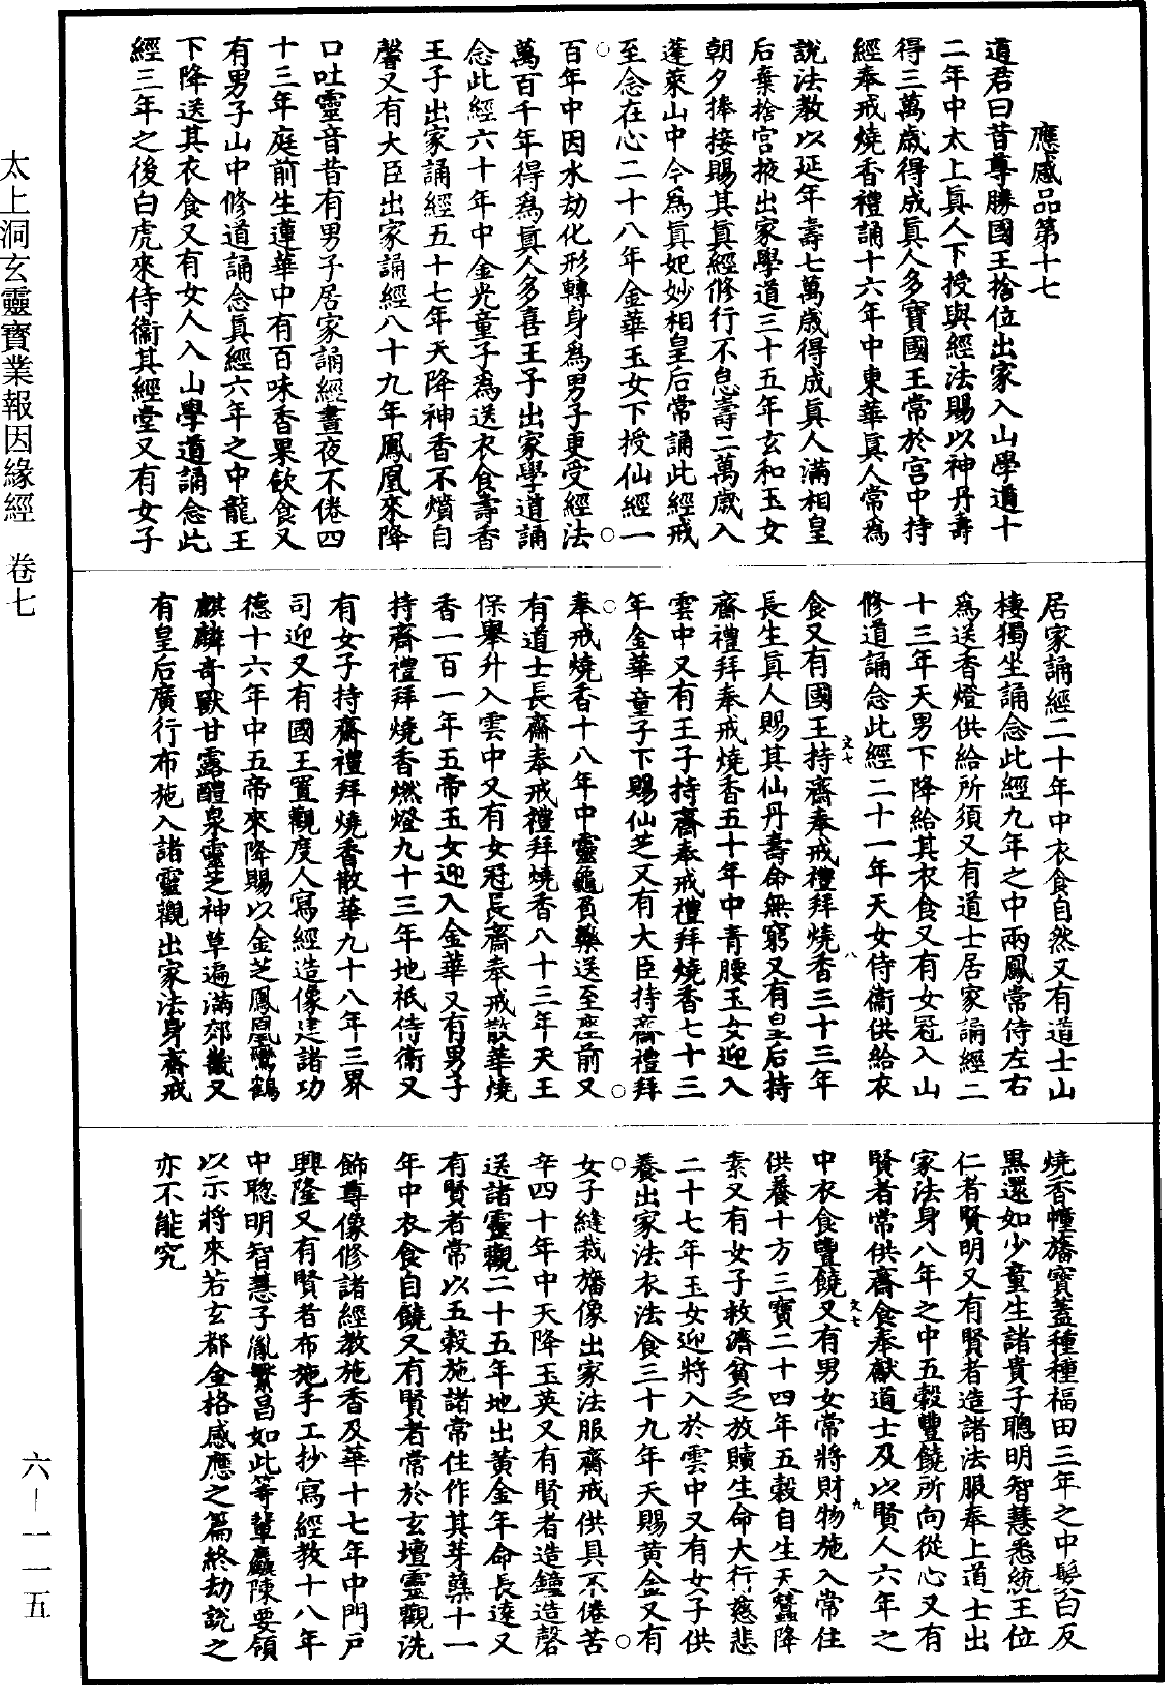 應感品第十七
道君曰昔尊勝國王捨位出家入山學道十
二年中太上眞人下授與經法賜以神丹壽
得三萬歲得成眞人多寶國王常於宮中持
經奉戒燒香禮誦十六年中東華眞人常爲
說法教以延年壽七萬歲得成眞人滿相皇
后棄捨宮掖出家學道三十五年玄和玉女
朝夕捧接賜其眞經修行不息壽二萬歲入
蓬萊山中今爲眞妃妙相皇后常誦此經戒
至念在心二十八年金華玉女下授仙經一
百年中因水劫化形轉身爲男子更受經法
萬百千年得爲眞人多喜王子出家學道誦
念此經六十年中金光童子爲送衣食壽香
王子出家誦經五十七年天降神香不燌自
馨又有大臣出家誦經八十九年鳳凰來降
口吐靈音昔有男子居家誦經晝夜不倦四
十三年庭前生蓮華中有百味香果飲食又
有男子山中修道誦念眞經六年之中龍王
下降送其衣食又有女人入山學道誦念此
經三年之後白虎來侍衞其經堂又有女子
居家誦經二十年中衣食自然又有道士山
棲獨坐誦念此經九年之中兩鳳常侍左右
爲送香燈供給所須又有道士居家誦經二
十三年天男下降給其衣食又有女冠入山
修道誦念此經二十一年天女侍衞供給衣
食又有國王持齋奉戒禮拜燒香三十三年
長生眞人賜其仙丹壽命無窮又有皇后持
齋禮拜奉戒燒香五十年中青腰玉女迎入
雲中又有王子持齋奉戒禮拜燒香七十三
年金華童子下賜仙芝又有大臣持齋禮拜
奉戒燒香十八年中靈龜負藥送至座前又
有道士長齋奉戒禮拜燒香八十三年天王
保舉升入雲中又有女冠長齋奉戒散華燒
香一百一年五帝玉女迎入金華又有男子
持齋禮拜燒香燃燈九十三年地祇侍衞又
有女子持齋禮拜燒香散華九十八年三界
司迎又有國王置觀度人寫經造像建諸功
德十六年中五帝來降賜以金芝鳳凰鸞鶴
麒麟奇獸甘露醴泉靈芝神草遍滿郊畿又
有皇后廣行布施入諸靈觀出家法身齋戒
燒香幢旛寶蓋種種福田三年之中髮白反
黑還如少童生諸貴子聰明智慧悉統王位
仁者賢明又有賢者造諸法服奉上道士出
家法身八年之中五穀豐饒所向從心又有
賢者常供齋食奉獻道士及以賢人六年之
中衣食豐饒又有男女常將財物施入常住
供養十方三寶二十四年五穀自生天蠶降
素又有女子救濟貧乏放贖生命大行慈悲
二十七年玉女迎將入於雲中又有女子供
養出家法衣法食三十九年天賜黃金又有
女子縫裁旛像出家法服齋戒供具不倦苦
辛四十年中天降玉英又有賢者造鐘造磬
送諸靈觀二十五年地出黃金年命長遠又
有賢者常以五穀施諸常住作其芽蘖十一
年中衣食自饒又有賢者常於玄壇靈觀洗
飾尊像修諸經教施香及華十七年中門戶
興隆又有賢者布施手工抄寫經教十八年
中聰明智慧子胤繁昌如此等輩麤陳要領
以示將來若玄都金格感應之篇終劫說之
亦不能究
文七
八
文七
九
太上洞玄靈寶業報因緣經 卷七
六-一一五